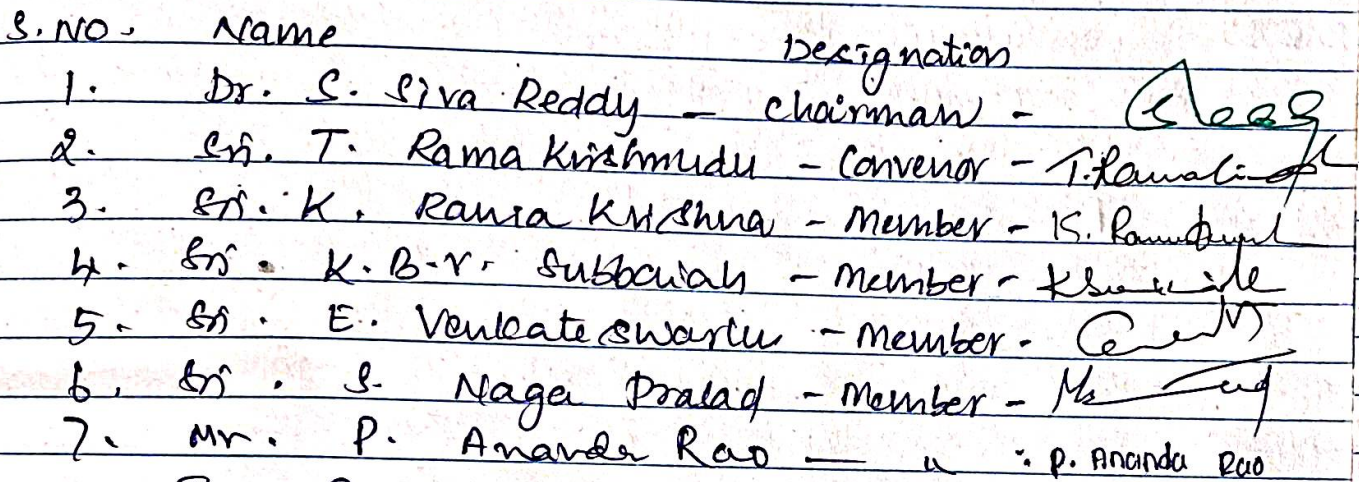 S. NO. Name Designation
1. Dr. S. Siva Reddy - Chairman -
2. Sri. T. Rama Krishnudu - Convenor - T. Ramakri
3. Sri. K. Rama Krishna - Member - K.
4. Sri. K. B. V. Subbaiah - Member -
5. Sri. E. Venkateswarlu - Member -
6. Sri. S. Naga Prasad - Member -
7. Mr. P. Ananda Rao — " : P. Ananda Rao